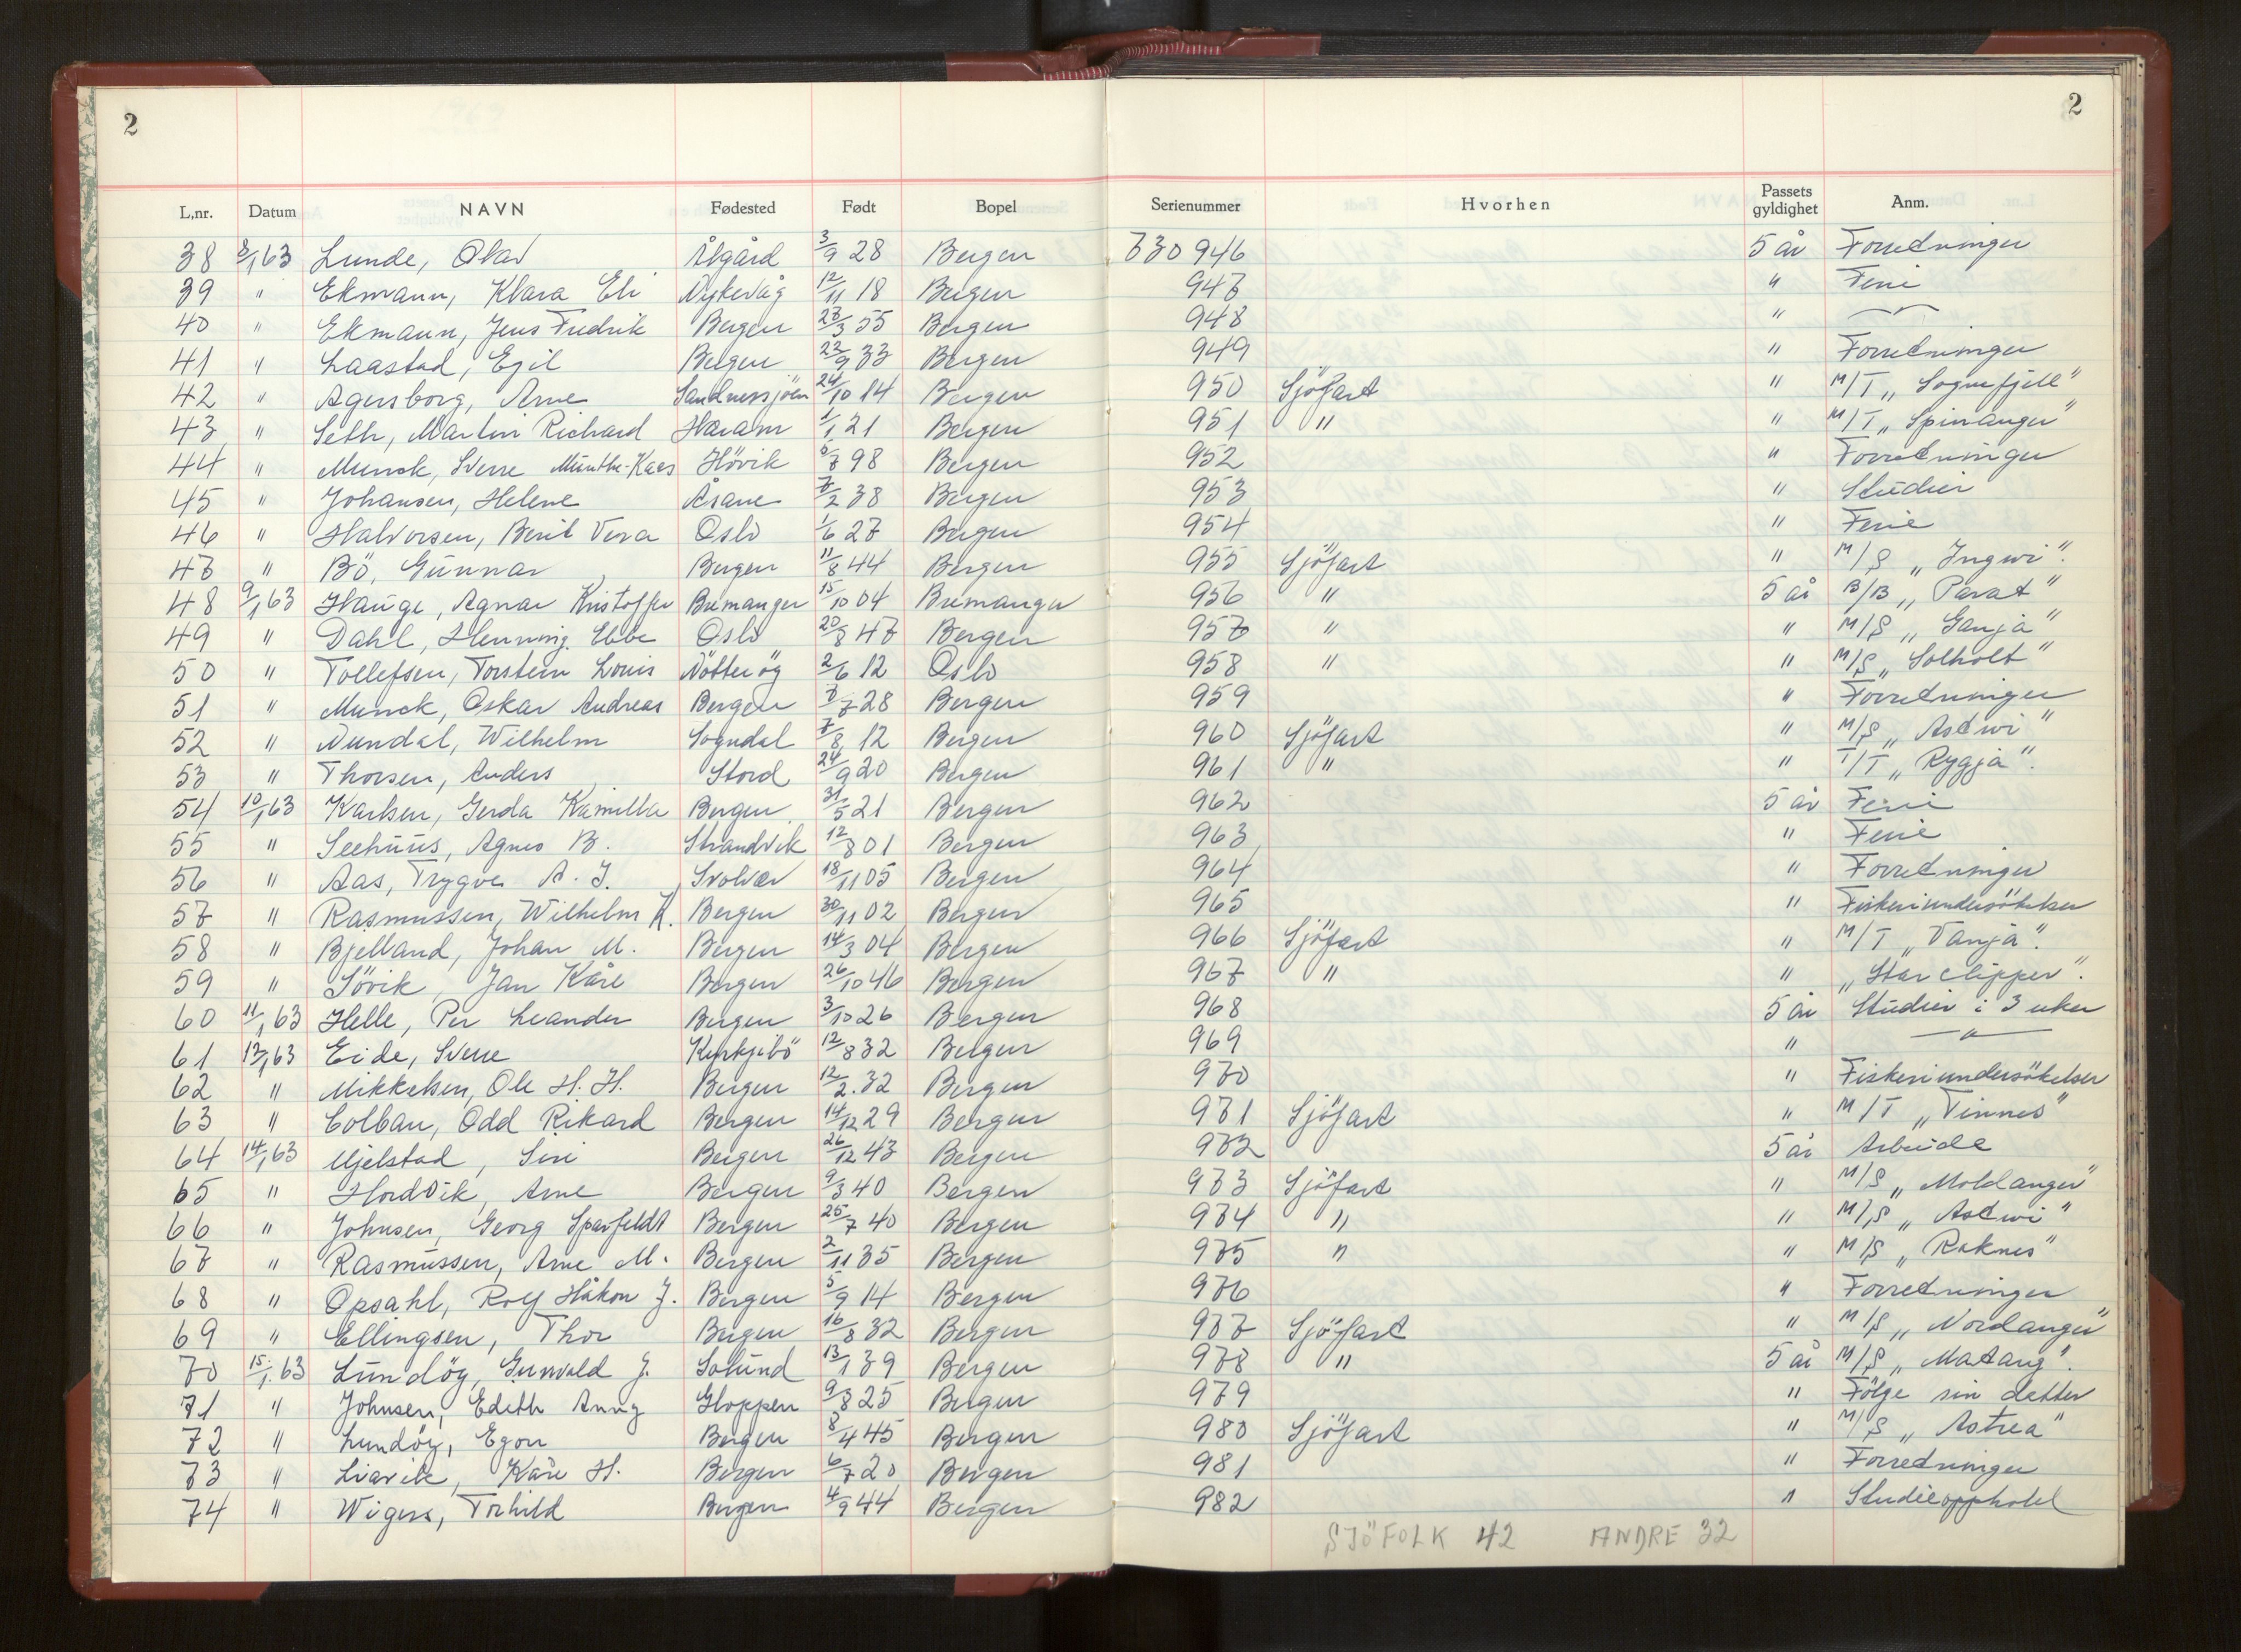 2 2
L,nr. Datum NAVN Fødested Født Bopel Serienummer Hvorhen Passets gyldighet Anm.
38 8/1 63 Lunde, Olav Ålgård 3/9 28 Bergen 730 946 5 år Forretninger
39 " Ekmann, Klara Eli Nykevåg 12/11 18 Bergen 947 " Ferie
40 " Ekmann, Jens Fredrik Bergen 27/3 55 Bergen 948 "
41 " Laastad, Egil Bergen 22/9 33 Bergen 949 " Forretninger
42 " Agersborg, Arne Sandnessjöen 24/10 14 Bergen 950 Sjöfart " M/T „Sognefjell"
43 " Seth, Martin Richard Haram 1/1 21 Bergen 951 " " M/T „Spinanger"
44 " Munck, Sverre Munthe-Kaas Hövik /7 98 Bergen 952 " Forretninger
45 " Johansen, Helene Åsane 7/2 38 Bergen 953 " Studier
46 " Halvorsen, Berit Vera Oslo 1/6 27 Bergen 954 " Ferie
47 " Bö, Gunnar Bergen 11/8 44 Bergen 955 Sjöfart " M/S „Ingwi".
48 9/1 63 Hauge, Agnar Kristoffer Bremanger 15/10 04 Bremanger 956 " 5 år B/B „Parat"
49 " Dahl, Henning Ebbe Oslo 20/8 47 Bergen 957 " " M/S „Ganja"
50 " Tollefsen, Torstein Louis Nötteröy 2/6 12 Oslo 958 " " M/S „Solholt"
51 " Munck, Oskar Andreas Bergen /7 28 Bergen 959 " Forretninger
52 " Nundal, Wilhelm Sogndal 7/8 12 Bergen 960 Sjöfart " M/S „Astwi"
53 " Thorsen, Anders Stord 24/9 20 Bergen 961 " " T/T „Rygja".
54 10/1 63 Karlsen, Gerda Kamilla Bergen 31/5 21 Bergen 962 5 år Ferie
55 " Seehuus, Agnes B. Strandvik 12/8 01 Bergen 963 " Ferie
56 " Aas, Trygve A. J. Svolvær 18/11 05 Bergen 964 " Forretninger
57 " Rasmussen, Wilhelm K. Bergen 30/11 02 Bergen 965 " Fiskeriundersökelser
58 " Bjelland, Johan M. Bergen 14/3 04 Bergen 966 Sjöfart " M/T „Vanja".
59 " Sövik, Jan Kåre Bergen 26/10 46 Bergen 967 " " „Star clipper".
60 11/1 63 Helle, Per Leander Bergen 3/10 26 Bergen 968 5 år Studier i 3 uker
61 12/1 63 Eide, Sverre Kyrkjebö 12/8 32 Bergen 969 " — " —
62 " Mikkelsen, Ole H. H. Bergen 12/2 32 Bergen 970 " Fiskeriundersökelser
63 " Colban, Odd Rikard Bergen 14/12 29 Bergen 971 Sjöfart " M/T „Vinnes"
64 14/1 63 Mjelstad, Siri Bergen 26/12 43 Bergen 972 5 år Arbeide
65 " Hordvik, Arne Bergen 9/3 40 Bergen 973 Sjöfart " M/S „Moldanger"
66 " Johnsen, Georg Sparfeldt Bergen 25/7 40 Bergen 974 " " M/S „Astwi"
67 " Rasmussen, Arne M. Bergen 2/11 35 Bergen 975 " " M/S „Raknes"
68 " Opsahl, Rolf Håkon J. Bergen 5/9 14 Bergen 976 " Forretninger
69 " Ellingsen, Thor Bergen 16/8 32 Bergen 977 Sjöfart " M/S „Nordanger"
70 15/1 63 Lundöy, Gunvald J. Solund 13/1 39 Bergen 978 " 5 år M/S „Matang".
71 " Johnsen, Edith Anny Gloppen 9/8 25 Bergen 979 " Fölge sin datter
72 " Lundöy, Egon Bergen 8/4 45 Bergen 980 Sjöfart " M/S „Astrea"
73 " Liavik, Kåre H. Bergen 6/7 20 Bergen 981 " Forretninger
74 " Wigers, Torhild Bergen 4/9 44 Bergen 982 " Studieopphold
SJÖFOLK 42 ANDRE 32